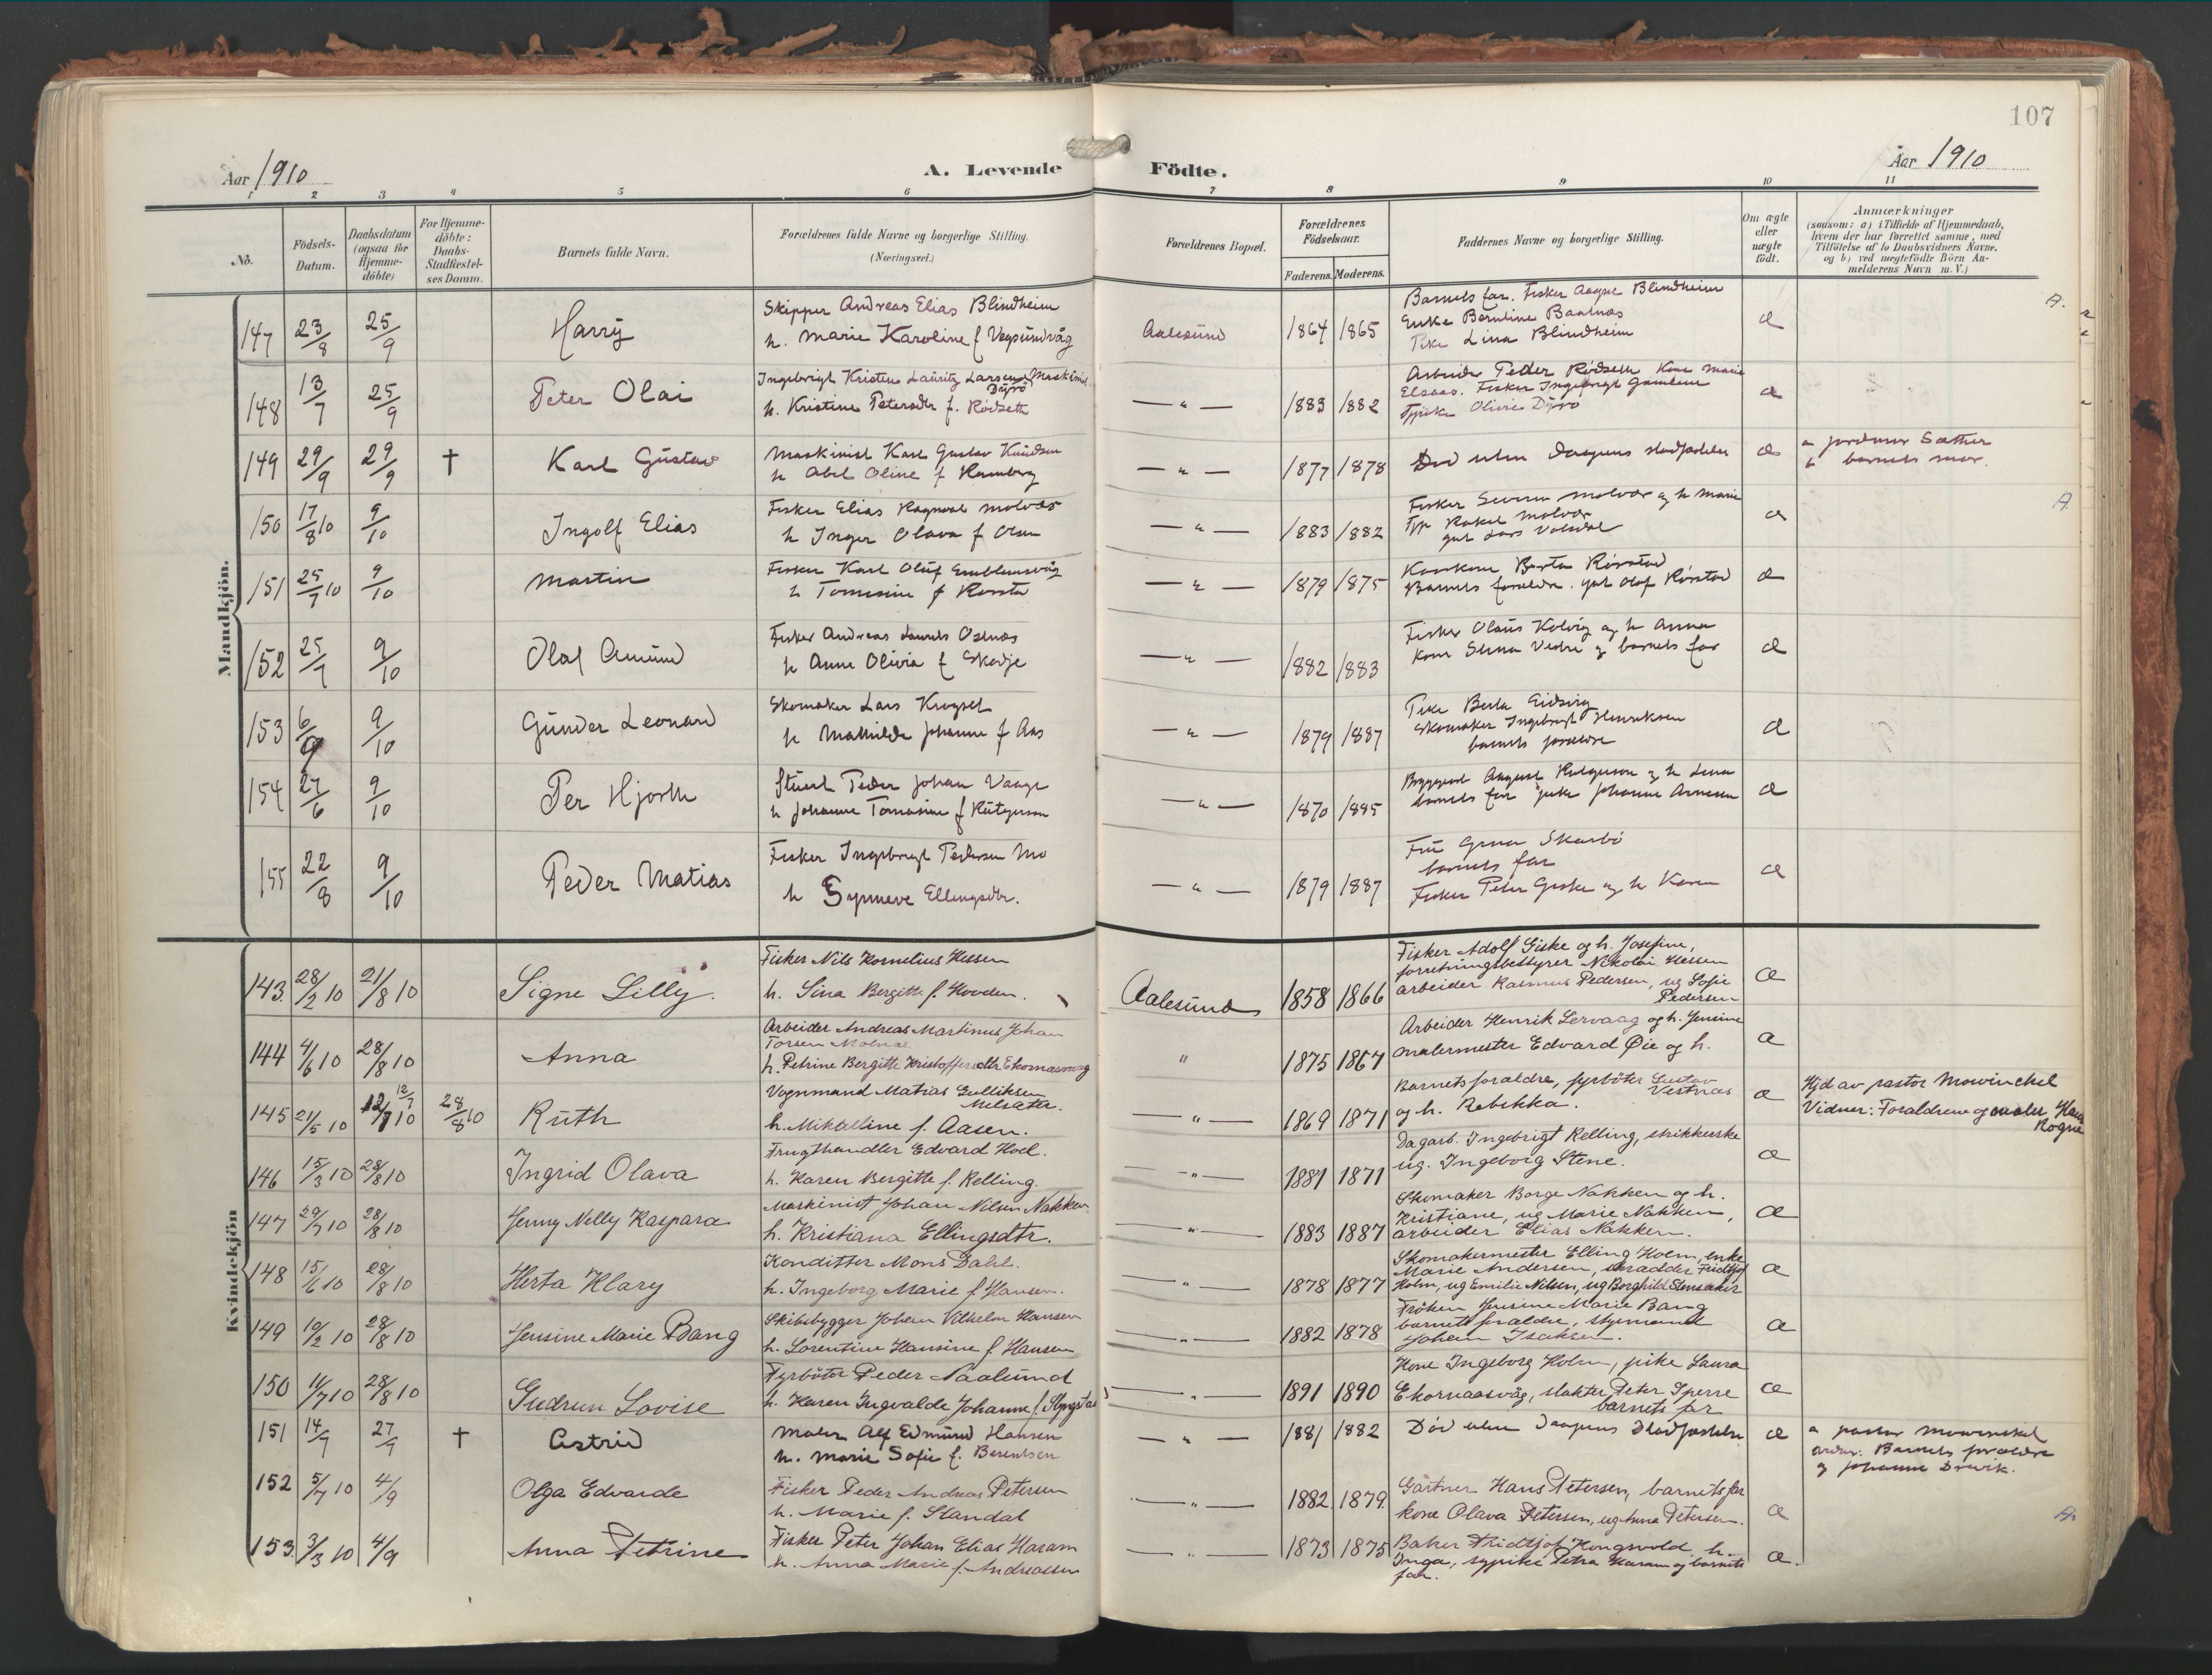 107
Aar 1910
A. Levende Födte.
Aar 1910
1 2 3 4 5 6 7 8 9 10 11
No.
Födsels-
Datum.
Daabsdatum
(ogsaa for
Hjemme-
döbte)
For Hjemme-
döbte:
Daabs-
Stadfæstel-
ses Datum.
Barnets fulde Navn.
Forældrenes fulde Navne og borgerlige Stilling.
(Næringsvei.)
Forældrenes Bopæl.
Forældrenes
Födselsaar.
Faderens. Moderens.
Faddernes Navne og borgerlige Stilling.
Om ægte
eller
uægte
födt.
Anmærkninger
(saasom: a) i Tilfælde af Hjemmedaab,
hvem der har forrettet samme, med
Tilföielse af to Daabsvidners Navne,
og b) ved uegtefödte Börn An-
melderens Navn m.V.)
Mandkjön.
147 23/8 25/9 Harry
Skipper Andreas Elias Blindheim
h. Marie Karoline f Vegsundvåg
Aalesund 1864 1865
Barnets far. Fisker Aagne Blindheim
Enke Berntine Baalnæs
Pike Lina Blindheim
æ
A.
148 13/7 25/9 Peter Olai
Ingebrigt Kristen Lauritz Larsen Maskinist
Dyrö
h. Kristine Petersdtr f. Rødseth
— " — 1883 1882
Arbeider Peder Rødseth Kone Marie
Elsaas. Fisker Ingebrigt
Olivie Dyrö
æ
149 29/9 29/9 † Karl Gustav
Maskinist Karl Gustav Knudsen
h Abel Oline f Ramberg
— " — 1877 1878
Død uten daapens stadfæstelse
æ
a jordmor Sæther
b barnets mor.
150 17/8 10 9/10 Ingolf Elias
Fisker Elias Ragnvald Molvær
h Inger Olava f Olsen
— " — 1883 1882
Fisker Severin Molvær og h Marie
Rakel Molvær
gut Lars
æ
A
151 25/7 10 9/10 Martin
Fisker Karl Oluf Emblemsvåg
h Tomasine f Rørstad
— " — 1879 1875
Berta Rørstad
Barnets forældre. gut Olaf Rørstad
æ
152 25/7 9/10 Olaf Amund
Fisker Andreas Laurits Osnæs
h Anne Olivia f Skodje
— " — 1882 1883
Fisker Olaus Kolvig og h Anna
Kone og barnets far
æ
153 6/9 9/10 Gunder Leonard
Skomaker Lars Krogset
h Mathilde Johanne f Aas
— " — 1879 1887
Pike Berta Eidsvig
Skomaker Ingebrigt Henriksen
barnets forældre
æ
154 27/6 9/10 Per Hjorth
Stuert Peder Johan Vaage
h Johanne Tomasine f Rutgerson
— " — 1870 1885
August Rutgerson og h Lena
barnets far pike Johanne Arnesen
æ
155 22/8 9/10 Peder Matias
Fisker Ingebrigt Pedersen Mo
h Synneve Ellingsdtr.
— " — 1879 1887
Fru Skarbö
barnets far
Fisker Peter Giske og h Karen
æ
Kvindekjön
143. 28/2 10 21/8 10 Signe Lilly.
Fisker Nils Kornelius Hessen
h. Sina Bergitte f. Hovden.
Aalesund 1858 1866
Fisker Adolf Giske og h. Josefine,
forretningsbestyrer Nikolai Hessen
arbeider Rasmus Pedersen, ug Sofie
Pedersen
æ
144 4/6 10 28/8 10 Anna
Arbeider Andreas Martinus Johan
Torsen Molnæs
h. Petrine Bergitte Kristoffersdtr Ekornæsvaag
" 1875 1867
Arbeider Henrik Lervaag og h. Jensine
malermester Edvard Øie og h.
æ
145 21/5 10 12/7 10 12/7 28/8 10 Ruth
Vognmand Matias Gulliksen
Melsæter.
h. Mikaline f. Aasen.
— " — 1869 1871
Barnets forældre, fyrböter Gustav
Vestnæs
og h. Rebekka.
æ
Hjd av pastor Mowinckel
Vidner: Forældrene og maler Hans
Rogne
146 15/3 10 28/8 10 Ingrid Olava
Frugthandler Edvard Hoel.
h. Karen Bergitte f. Relling.
— " — 1881 1871
Dagarb. Ingebrigt Relling, strikkerske
ug. Ingeborg Stene.
æ
147 29/7 10 28/8 10 Jenny Nelly Kaspara
Maskinist Johan Nilsen Nakken.
h. Kristiana Ellingsdtr.
— " — 1883 1887
Skomaker Borge Nakken og h.
Kristiane, ug Marie Nakken,
arbeider Elias Nakken.
æ
148 15/6 10 28/8 10 Herta Klary
Konditter Mons Dahl.
h. Ingeborg Marie f. Hansen.
— " — 1878 1877
Skomakermester Elling Holm, enke
Marie Andersen, skrædder Fridtjof
Holm, ug Emilie Nilsen, ug Borghild Stensaker
æ
149 10/2 10 28/8 10 Jensine Marie Bang
Skibsbygger Johan Vilhelm Hansen
h. Lorentine Hansine f. Hansen
— " — 1882 1878
Fröken Jensine Marie Bang
barnets forældre, styrmand
Johan Isaksen.
æ
150 11/7 10 28/8 10 Gudrun Lovise
Fyrböter Peder Paalsund
h. Karen Ingvalde Johanne f. Slyngstad
— " — 1891 1890
Kone Ingeborg Holm, pike Laura
Ekornaasvåg, slakter Peter Sperre
barnets far
æ
151 14/9 27/9 † Astrid
Maler Alf Edmund Hansen
h. Marie Sofie f. Berentsen
— " — 1881 1882
Död uten daapens stadfæstelse
æ
a pastor Mowinckel
Barnets forældre
og Johanne Drevik.
152 5/7 10 4/9 Olga Edvarde
Fisker Peder Andreas Petersen
h. Marie f. Standal
— " — 1882 1879
Gartner Hans Petersen, barnets far
kone Olava Petersen, ug Anna Petersen.
æ
153. 3/3 10 4/9 Anna Petrine
Fisker Peter Johan Elias Haram
h. Anna Marie f. Andreassen
— " — 1873 1875
Baker Fridtjof Kongsvold h.
Inga, sypike Petra Haram og barnets
far.
æ.
A.